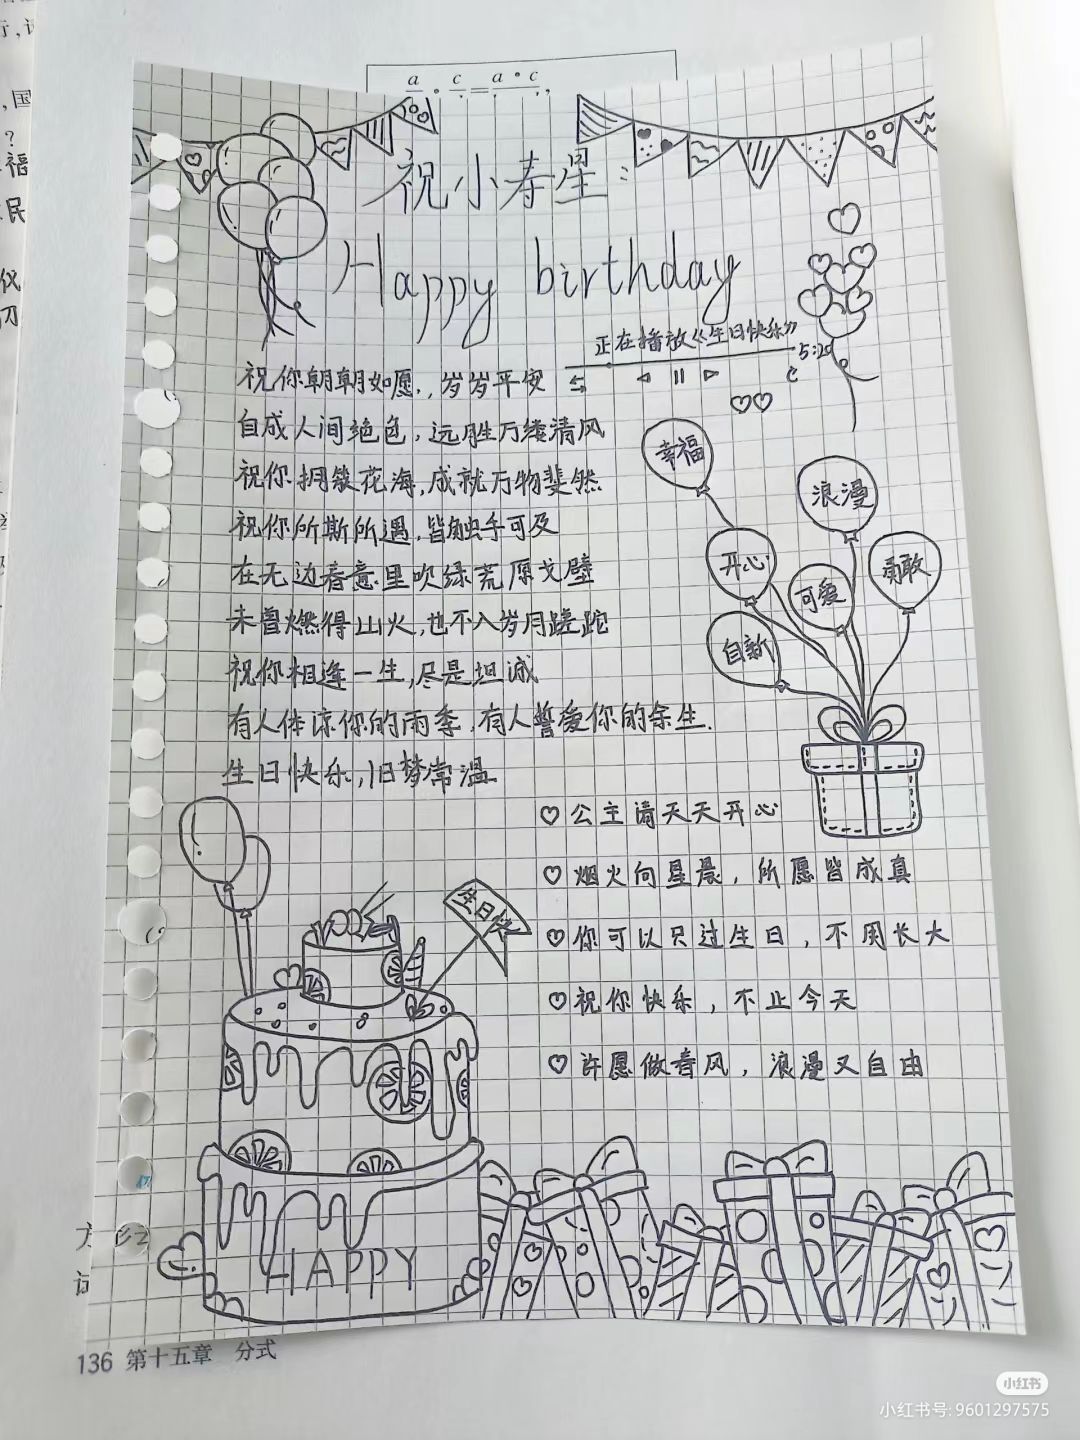 a/b · c/d = a·c/b·d,
祝小寿星:
Happy birthday
正在播放《生日快乐》
5:20
祝你朝朝如愿,岁岁平安
自成人间绝色,远胜万缕清风
祝你拥簇花海,成就万物斐然
祝你所斯所遇,皆触手可及
在无边春意里吹绿荒原戈壁
未曾燃得山火,也不入岁月蹉跎
祝你相逢一生,尽是坦诚
有人体谅你的雨季,有人誓爱你的余生.
生日快乐,旧梦常温
幸福
浪漫
开心
可爱
勇敢
自新
♡公主请天天开心
♡烟火向星晨,所愿皆成真
♡你可以只过生日,不用长大
♡祝你快乐,不止今天
♡许愿做春风,浪漫又自由
生日快
HAPPY
136 第十五章 分式
小红书
小红书号:9601297575